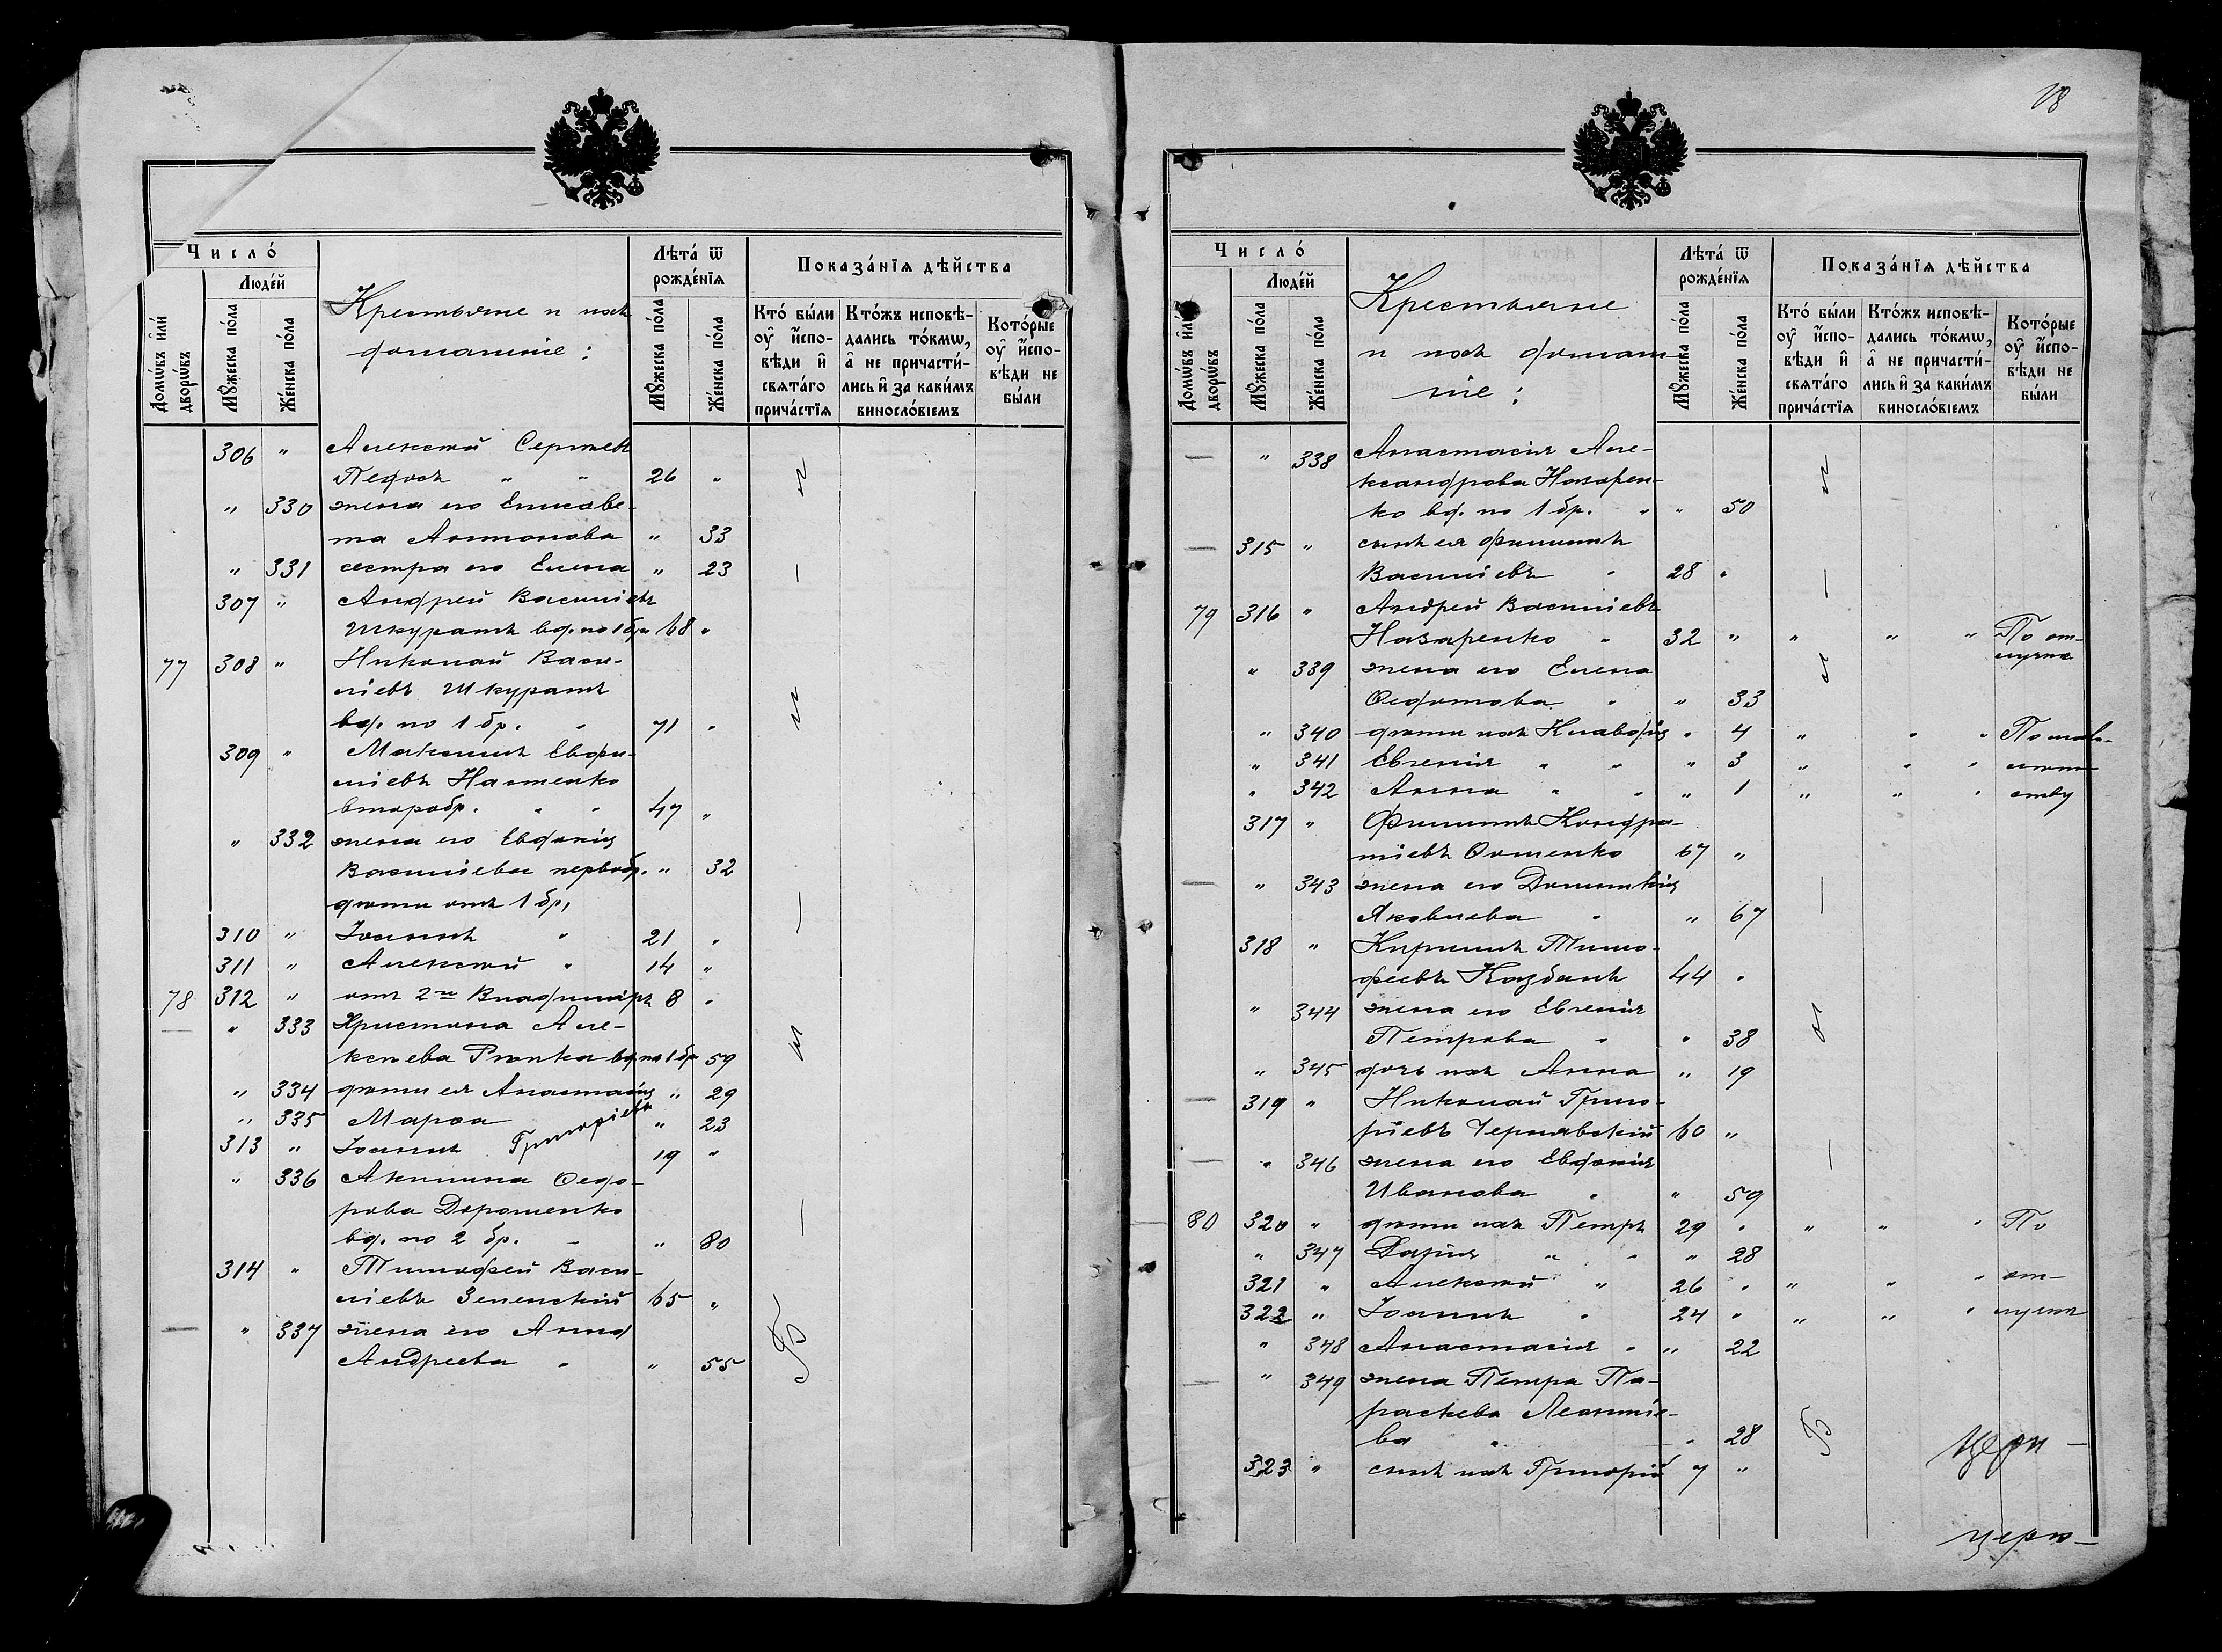 Число́
Люде́й
Домѡ́въ и҆лѝ дворѡ́въ
Мꙋ́жеска по́ла
Же́нска по́ла
Крестьяне и ихъ
домашніе:
Лѣта́ ѿ рожде́нїѧ
Мꙋ́жеска по́ла
Же́нска по́ла
Показа́нїѧ дѣ́йства
Кто̀ бы́ли оу҆ и҆спо-вѣди и҆ свѧта́го прича́стїѧ
Кто́жъ исповѣ-дались то́кмѡ, а҆ не причасти́-лись и҆ за каки́мъ винослóвїемъ
Кото́рые оу҆ и҆спо-вѣди не бы́ли
306 " Алексѣй Сергѣевъ
" " 26 "
" 330 жена его Елисаве-
та Антонова " 33
" 331 сестра его Елена " 23
307 " Андрей Василіевъ
Шкуратъ вд. по 1 бр. 68 "
77 308 " Николай Васи-
ліевъ Шкуратъ
вд. по 1 бр. " 71 "
309 " Максимъ Евфи-
міевъ
второбр. " " 47 "
" 332 жена его Евдокія
Василіева первобр. " 32
дѣти отъ 1 бр.
310 " Іоаннъ " 21 "
311 " Алексѣй " 14 "
78 312 " отъ 2го Владиміръ 8 "
— " 333 Христина Але-
ксѣева вд. по 1 бр. 59
" 334 дѣти ея Анастасія " 29
" 335 Марѳа " 23
313 " Іоаннъ Григоріевъ 19 "
" 336 Акилина Ѳедо-
рова Дорошенко
вд. по 2 бр. " " 80
314 " Тимоѳей Васи-
ліевъ Зеленскій 65 "
— " 337 жена его Анна
Андреева " " 55
18
Число́
Люде́й
Домѡ́въ и҆лѝ дворѡ́въ
Мꙋ́жеска по́ла
Же́нска по́ла
Крестьяне
и ихъ домаш-
ніе:
Лѣта́ ѿ рожде́нїѧ
Мꙋ́жеска по́ла
Же́нска по́ла
Показа́нїѧ дѣ́йства
Кто̀ бы́ли оу҆ и҆спо-вѣди и҆ свѧта́го прича́стїѧ
Кто́жъ исповѣ-дались то́кмѡ, а҆ не причасти́-лись и҆ за каки́мъ винослóвїемъ
Кото́рые оу҆ и҆спо-вѣди не бы́ли
— " 338 Анастасія Але-
ксандрова Назарен-
ко вд. по 1 бр. " " 50
— 315 " сынъ ея Филиппъ
Василіевъ " 28 "
79 316 " Андрей Василіевъ
Назаренко " 32 " " " " По от-
лучкѣ
" 339 жена его Елена
Ѳедотова " " 33
" 340 дѣти ихъ Клавдія " 4 " " " По мало-
" 341 Евгенія " " " 3 " " " лѣт-
" 342 Анна " " " 1 " " " ству
317 " Филиппъ Кондра-
тіевъ 67 "
— " 343 жена его Домникія
Яковлева " " 67
318 " Кириллъ Тимо-
феевъ Казбанъ 44 "
" 344 жена его Евгенія
Петрова " " 38
" 345 дочь ихъ Анна " 19
— 319 " Николай Григо-
ріевъ Чернявскій 60 "
— " 346 жена его Евдокія
Иванова " " 59
80 320 " дѣти ихъ Петръ 29 " " " " По
" 347 Дарія " " " 28
321 " Алексѣй " 26 " " " " от-
322 " Іоаннъ " 24 " " " " лучкѣ
" 348 Анастасія " " 22
— " 349 жена Петра Па-
раскева Леонтіе-
ва " " 28
323 " сынъ ихъ Григорій 7 "
церк-